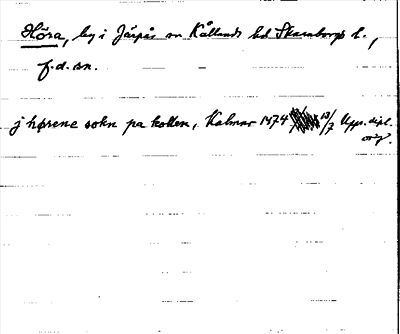 Höra, by i Järpås sn Kållands hd Skaraborgs l.,
f.d. sn.
j hørene sokn pa kollen, Kalmar 1474 13/7 Upps. dipl.
orig.